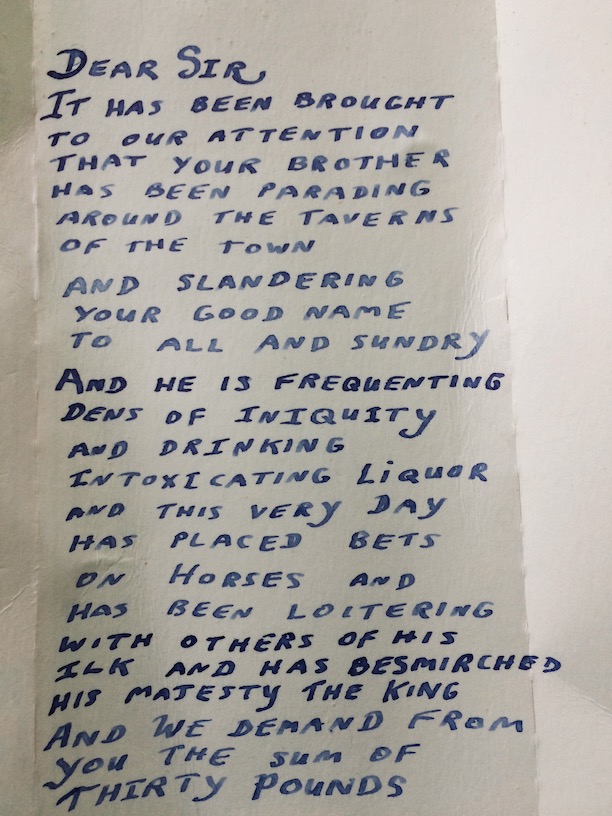 DEAR SIR
IT HAS BEEN BROUGHT
TO OUR ATTENTION
THAT YOUR BROTHER
HAS BEEN PARADING
AROUND THE TAVERNS
OF THE TOWN
AND SLANDERING
YOUR GOOD NAME
TO ALL AND SUNDRY
AND HE IS FREQUENTING
DENS OF INIQUITY
AND DRINKING
INTOXICATING LiQUOR
AND THIS VERY DAY
HAS PLACED BETS
ON HORSES AND
HAS BEEN LOITERING
WITH OTHERS OF HIS
ILK AND HAS BESMIRCHED
HIS MATESTY THE KING
AND WE DEMAND FROM
YOU THE SUM OF
THIRTY POUNDS